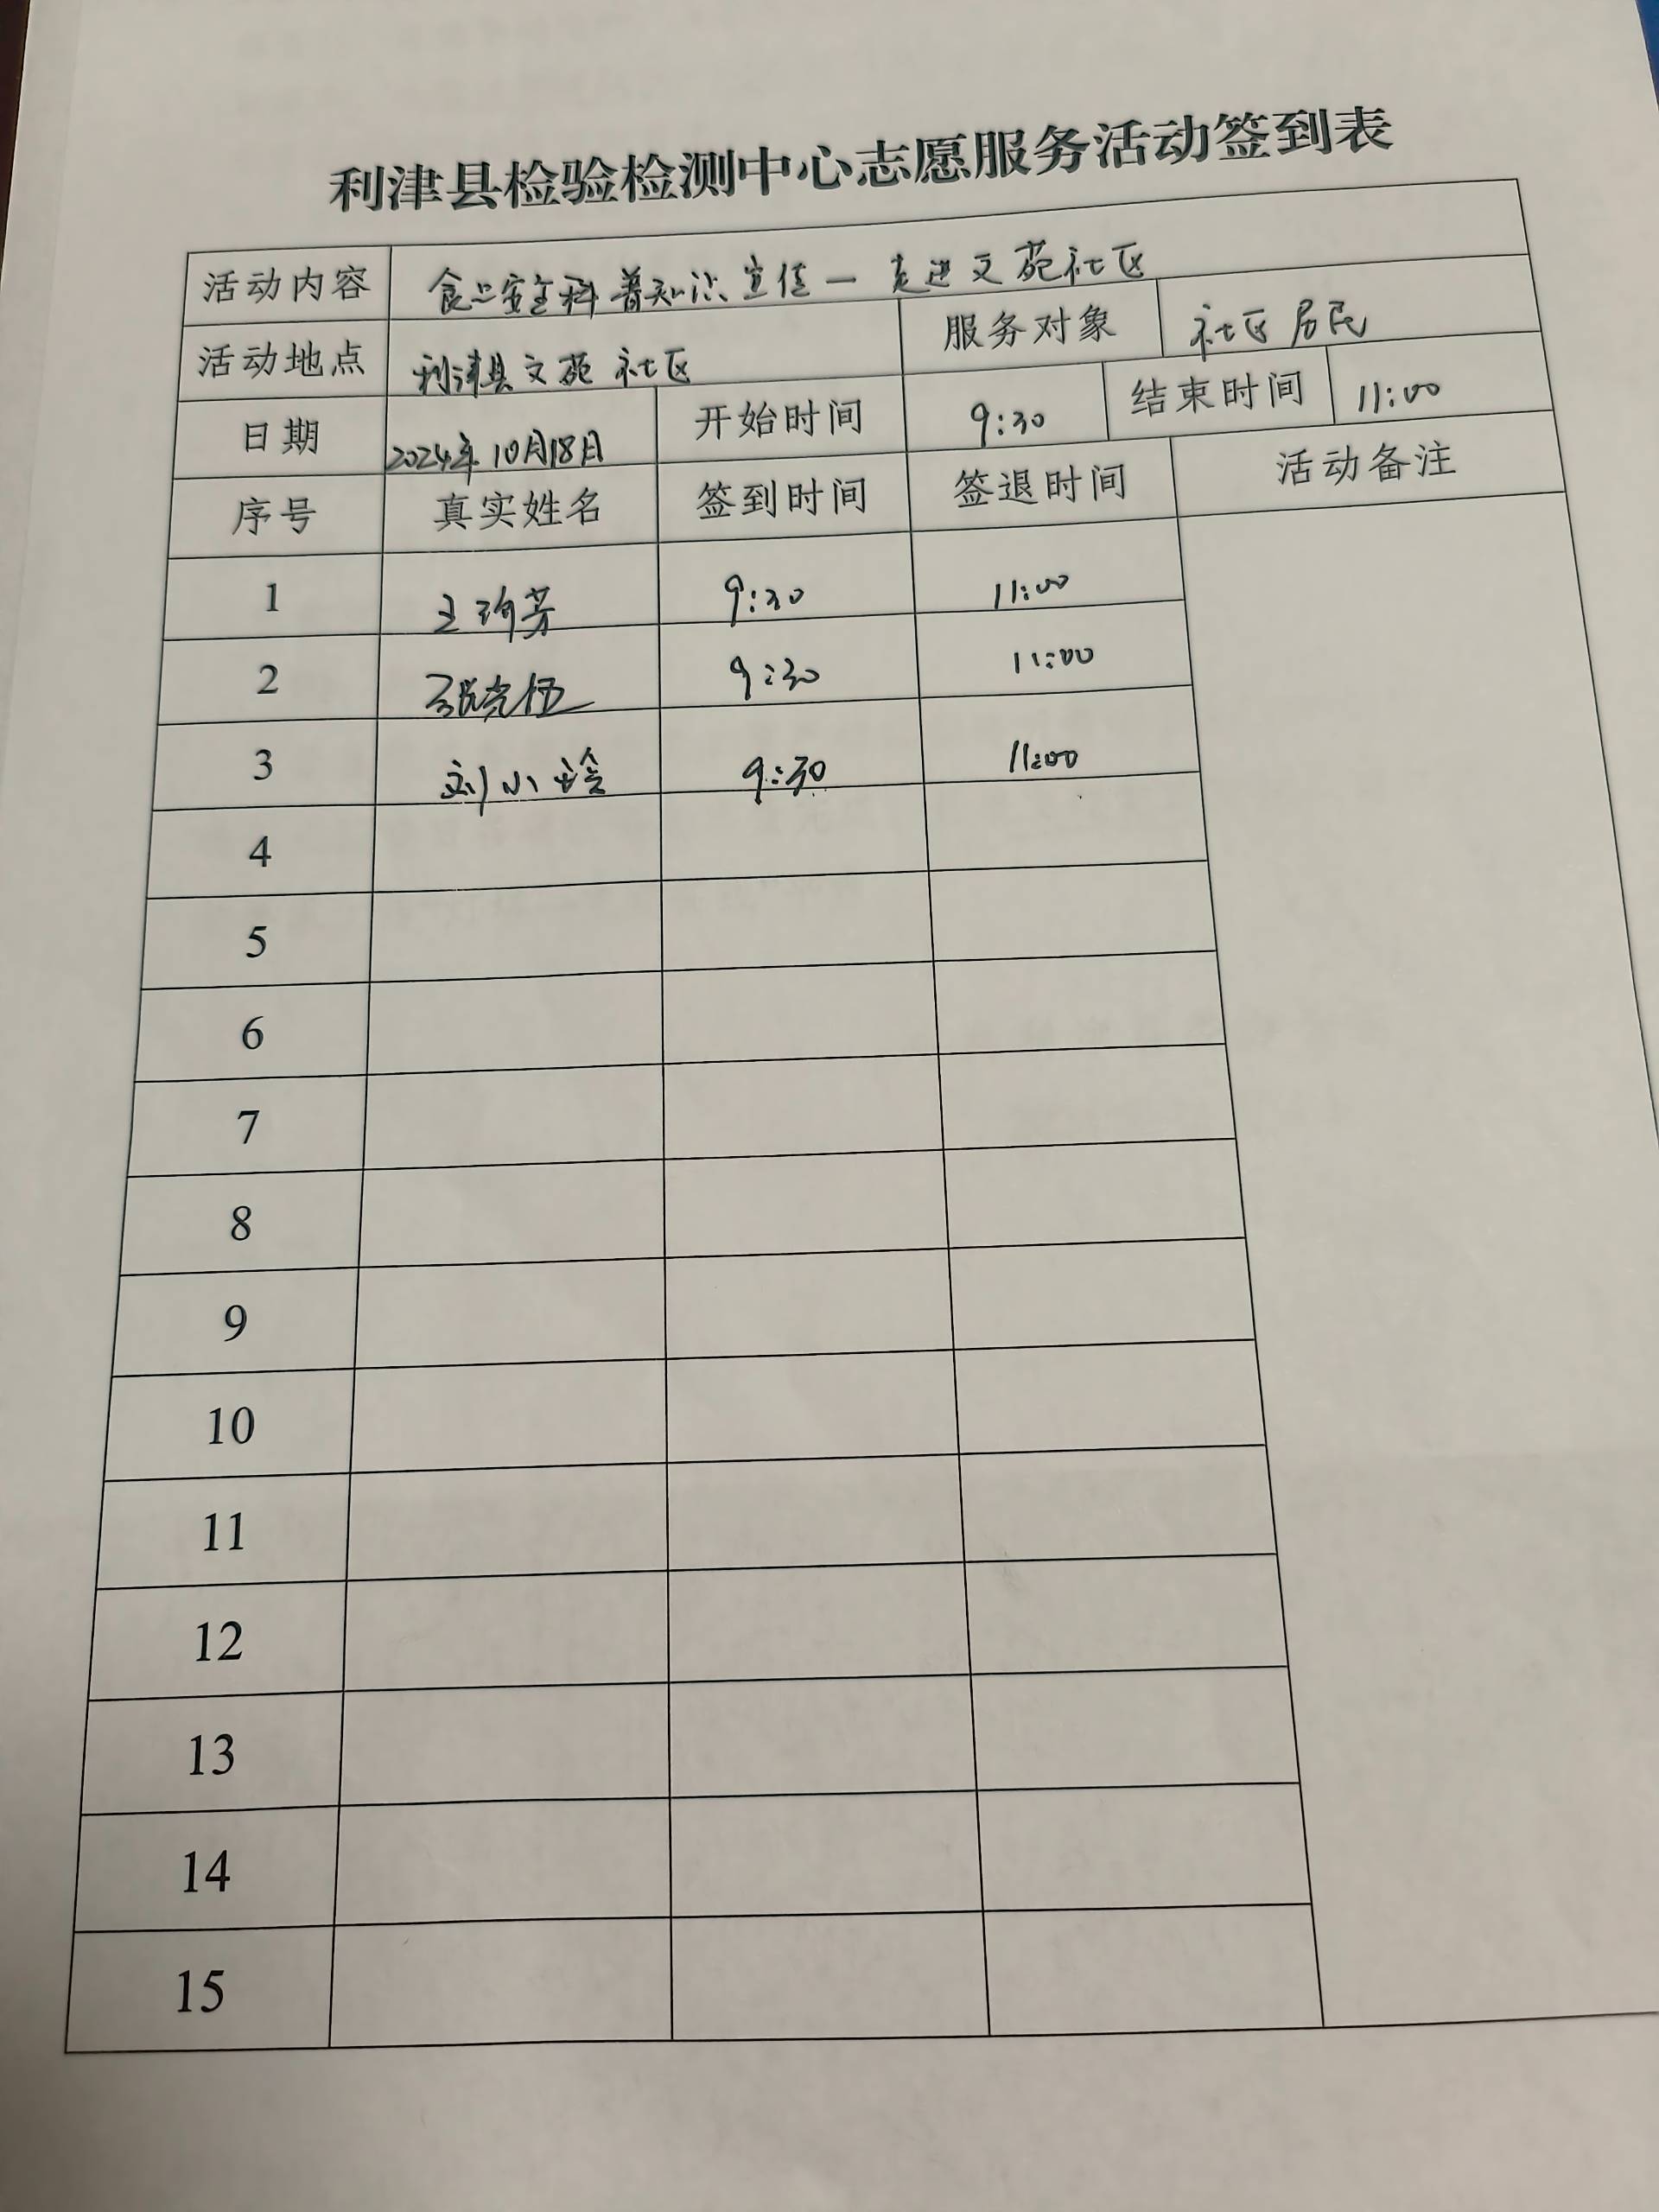 利津县检验检测中心志愿服务活动签到表
活动内容 食品安全科普知识宣传一走进文苑社区
活动地点 利津县文苑社区 服务对象 社区居民
日期 2024年10月18日 开始时间 9:30 结束时间 11:00
序号 真实姓名 签到时间 签退时间 活动备注
1 王 芳 9:30 11:00
2 9:30 11:00
3 刘小 9:30 11:00
4
5
6
7
8
9
10
11
12
13
14
15